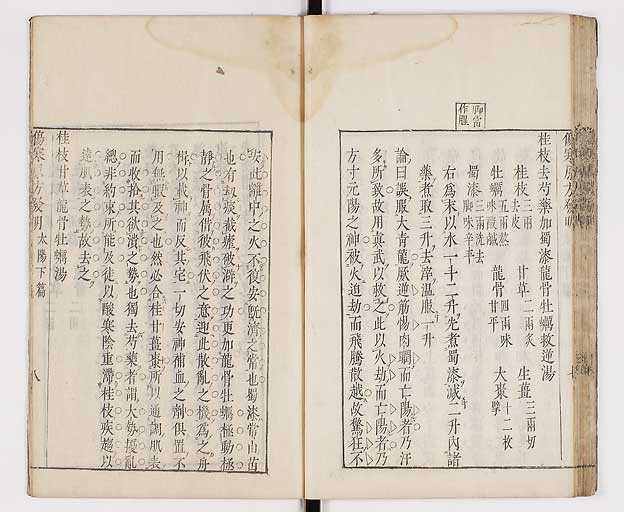 傷寒原方發明
桂枝去芍藥加蜀漆龍骨牡蠣救逆湯
桂枝三兩去皮 甘草二兩炙 生薑三兩切
牡蠣五兩熬味鹹 龍骨四兩味甘平 大棗十二枚擘
蜀漆三兩洗去腥味辛平
右為末以水一十二升先煮蜀漆減二升內諸
藥煮取三升去滓溫服一升
論曰誤服大青龍厥逆筋惕肉瞤而亡陽者乃汗
多所致故用真武以救之此以火劫而亡陽者乃
方寸元陽之神被火迫劫而飛騰散越故驚狂不
卿當作腥
安此離中之火不復安既濟之常也蜀漆常山苗
也有刼痰截瘧被澼之功更加龍骨牡蠣極動極
靜之骨屬借彼飛伏之意迎此散亂之機為之舟
楫以載神而反其宅一切安神補血之劑俱置不
用無暇及之也然必合桂甘薑棗所以通調肌表
而收拾其欲潰之勢也獨去芍藥者謂大勢擾亂
總非約束所能及徒以酸寒陰重滯桂枝疾趨以
達肌表之勢故去之
桂枝甘草龍骨牡蠣湯
傷寒原方發明 太陽下篇 八